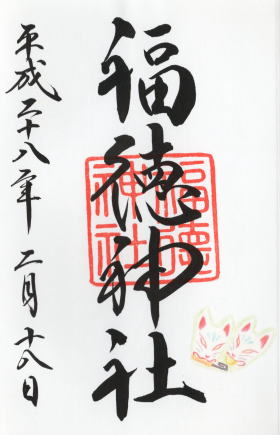 福徳神社
福徳神社
平成二十八年 二月 十八日